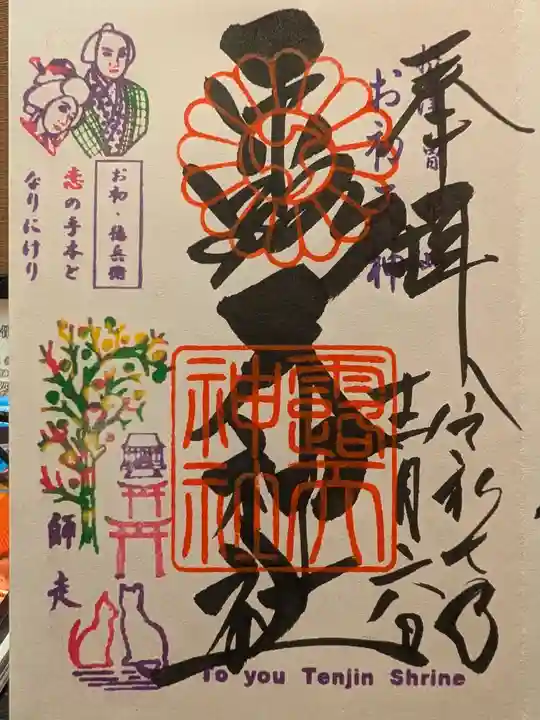 奉拝
令和七年
十二月六日
お初天神
露天神社
露天
神社
お初・徳兵衛
恋の手本と
なりにけり
師走
To you Tenjin Shrine